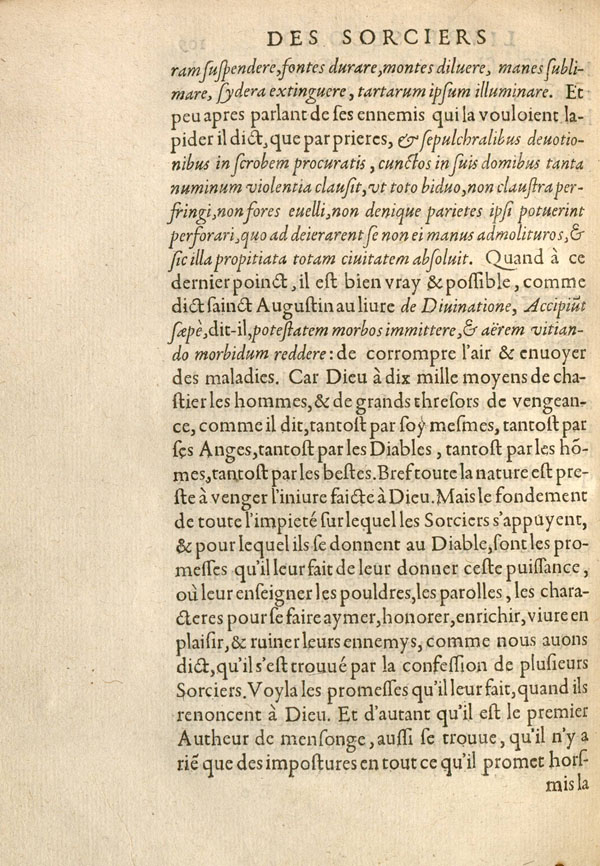 DES SORCIERS
ram suſpendere, fontes durare, montes diluere, manes ſubli-
mare, ſydera extinguere, tartarum ipſum illuminare. Et
peu apres parlant de ſes ennemis qui la vouloient la-
pider il dict, que par prieres, & ſepulchralibus deuotio-
nibus in ſcrobem procuratis, cunctos in ſuis domibus tanta
numinum violentia clauſit, vt toto biduo, non clauſtra per-
fringi, non fores euelli, non denique parietes ipſi potuerint
perforari, quo ad deierarent ſe non ei manus admolituros, &
ſic illa propitiata totam ciuitatem abſoluit. Quand à ce
dernier poinct, il est bien vray & poſſible, comme
dict ſainct Auguſtin au liure de Diuinatione, Accipiũt
ſæpè, dit-il, poteſtatem morbos immittere, & aërem vitian-
do morbidum reddere: de corrompre l'air & enuoyer
des maladies. Car Dieu à dix mille moyens de cha-
ſtier les hommes, & de grands threſors de vengean-
ce, comme il dit, tantoſt par ſoy meſmes, tantoſt par
ſes Anges, tantoſt par les Diables, tantoſt par les hõ-
mes, tantoſt par les beſtes. Bref toute la nature eſt pre-
ſte à venger l'iniure faicte à Dieu. Mais le fondement
de toute l'impieté ſur lequel les Sorciers s'appuyent,
& pour lequel ils ſe donnent au Diable, ſont les pro-
meſſes qu'il leur fait de leur donner ceſte puiſſance,
où leur enſeigner les pouldres, les parolles, les chara-
cteres pour ſe faire aymer, honorer, enrichir, viure en
plaiſir, & ruiner leurs ennemys, comme nous auons
dict, qu'il s'eſt trouué par la confeſſion de pluſieurs
Sorciers. Voyla les promeſſes qu'il leur fait, quand ils
renoncent à Dieu. Et d'autant qu'il eſt le premier
Autheur de menſonge, auſſi ſe trouue, qu'il n'y a
riẽ que des impoſtures en tout ce qu'il promet horſ-
mis la